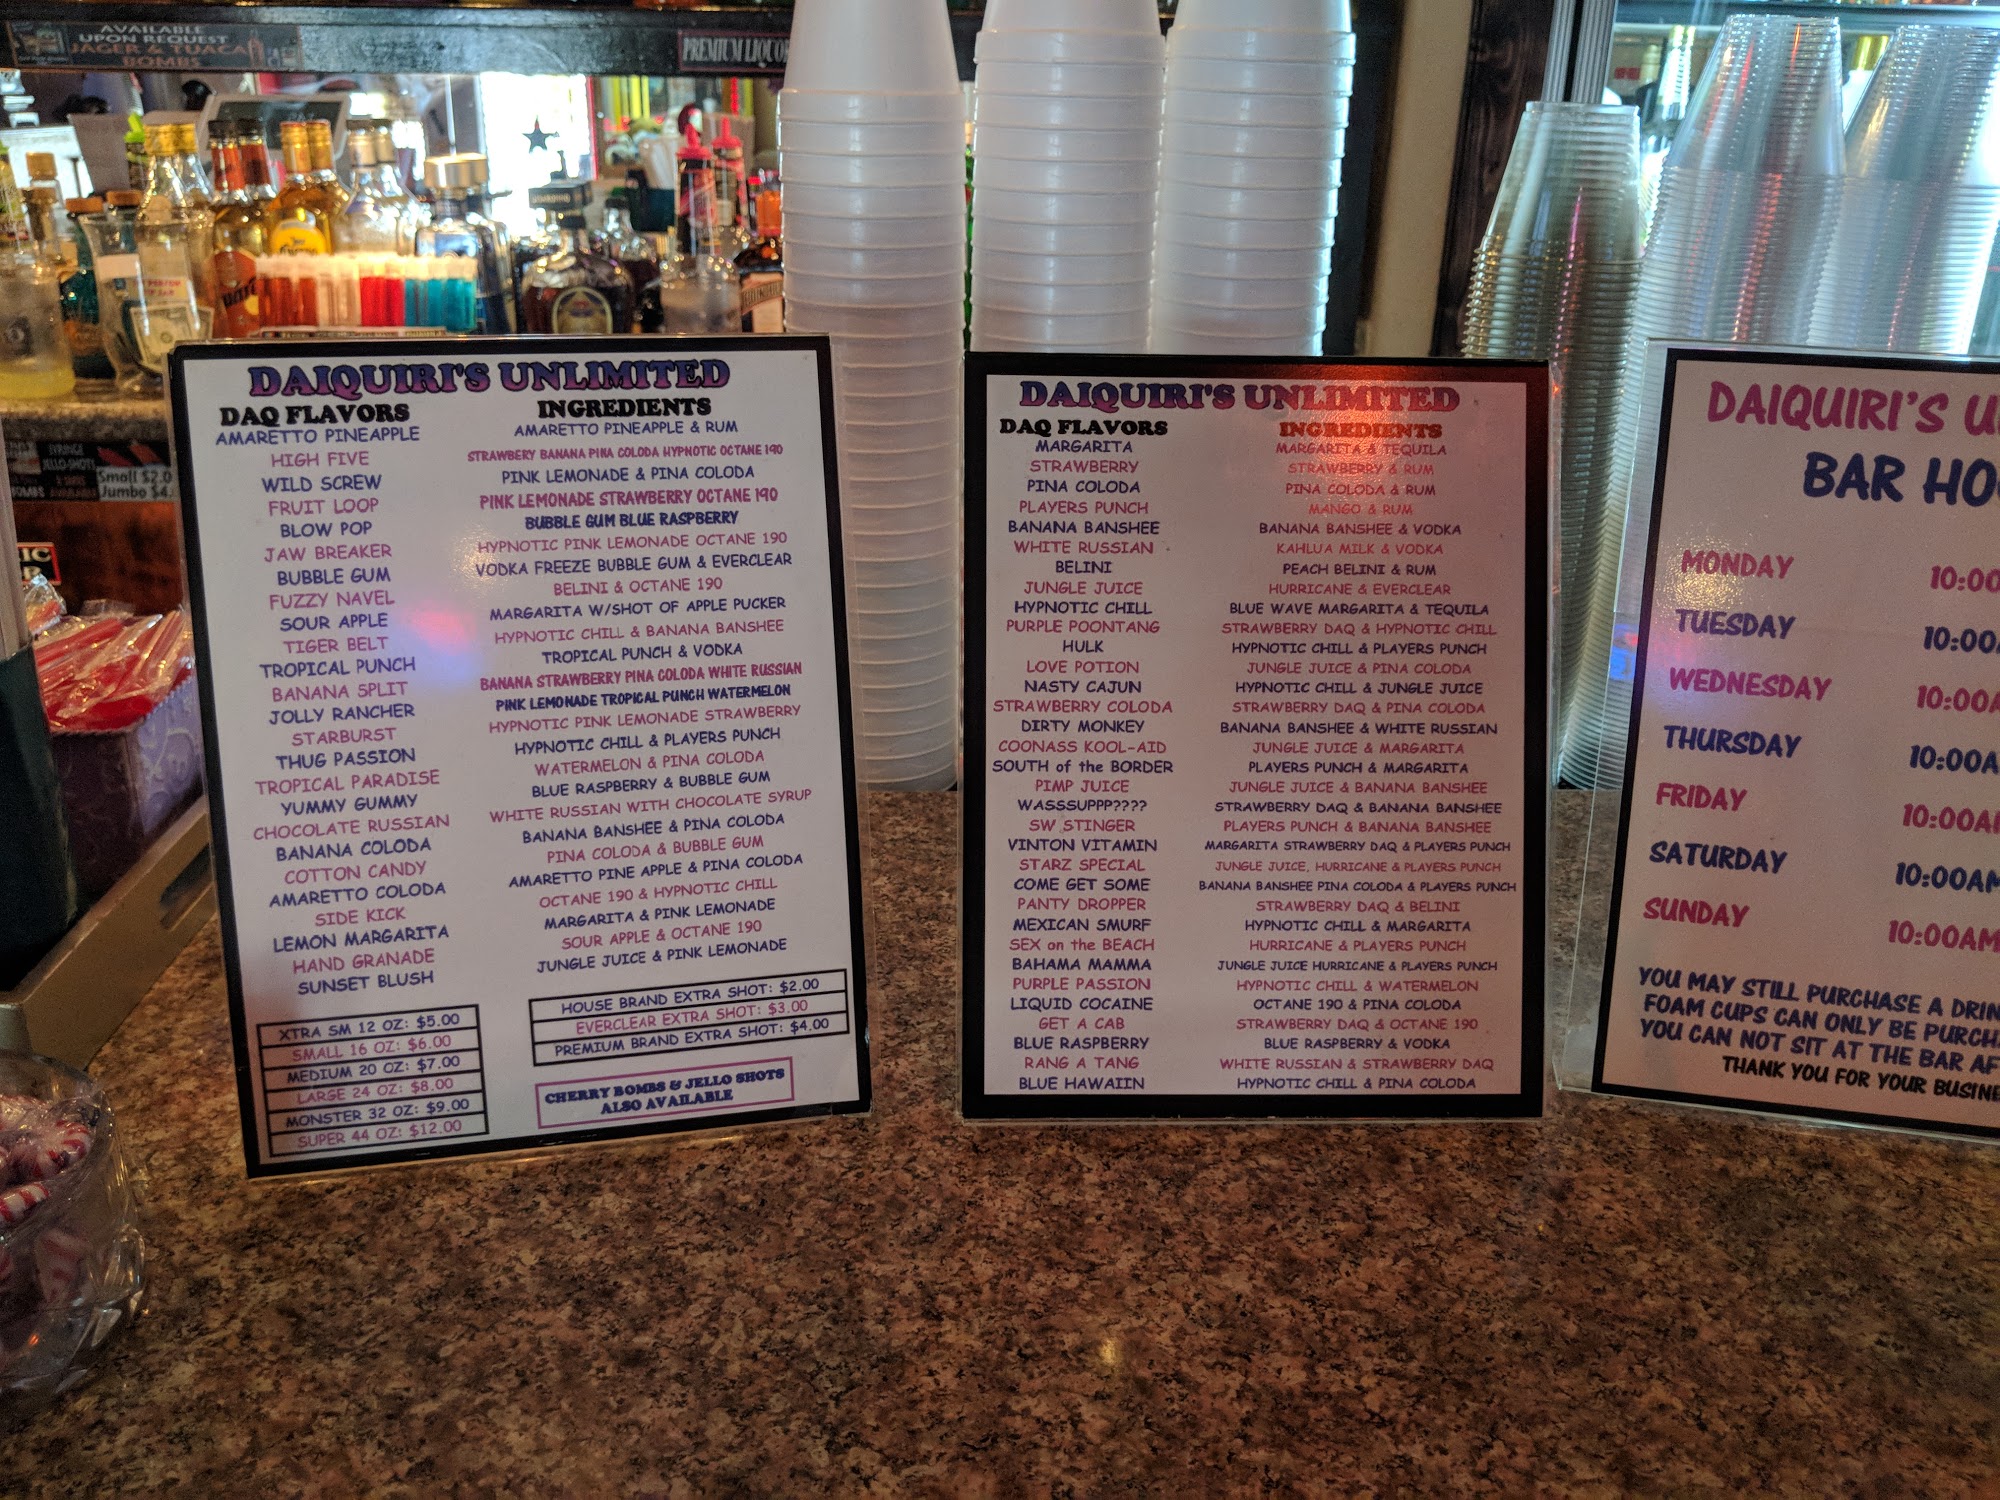 AVAILABLE
UPON REQUEST
JAGER & TUACA
BOMBS
PREMIUM LIQUO
Small $2.0
Jumbo $4.
DAIQUIRI'S UNLIMITED
DAQ FLAVORS INGREDIENTS
AMARETTO PINEAPPLE AMARETTO PINEAPPLE & RUM
HIGH FIVE STRAWBERY BANANA PINA COLODA HYPNOTIC OCTANE 190
WILD SCREW PINK LEMONADE & PINA COLODA
FRUIT LOOP PINK LEMONADE STRAWBERRY OCTANE 190
BLOW POP BUBBLE GUM BLUE RASPBERRY
JAW BREAKER HYPNOTIC PINK LEMONADE OCTANE 190
BUBBLE GUM VODKA FREEZE BUBBLE GUM & EVERCLEAR
FUZZY NAVEL BELINI & OCTANE 190
SOUR APPLE MARGARITA W/SHOT OF APPLE PUCKER
TIGER BELT HYPNOTIC CHILL & BANANA BANSHEE
TROPICAL PUNCH TROPICAL PUNCH & VODKA
BANANA SPLIT BANANA STRAWBERRY PINA COLODA WHITE RUSSIAN
JOLLY RANCHER PINK LEMONADE TROPICAL PUNCH WATERMELON
STARBURST HYPNOTIC PINK LEMONADE STRAWBERRY
THUG PASSION HYPNOTIC CHILL & PLAYERS PUNCH
TROPICAL PARADISE WATERMELON & PINA COLODA
YUMMY GUMMY BLUE RASPBERRY & BUBBLE GUM
CHOCOLATE RUSSIAN WHITE RUSSIAN WITH CHOCOLATE SYRUP
BANANA COLODA BANANA BANSHEE & PINA COLODA
COTTON CANDY PINA COLODA & BUBBLE GUM
AMARETTO COLODA AMARETTO PINE APPLE & PINA COLODA
SIDE KICK OCTANE 190 & HYPNOTIC CHILL
LEMON MARGARITA MARGARITA & PINK LEMONADE
HAND GRANADE SOUR APPLE & OCTANE 190
SUNSET BLUSH JUNGLE JUICE & PINK LEMONADE
XTRA SM 12 OZ: $5.00
SMALL 16 OZ: $6.00
MEDIUM 20 OZ: $7.00
LARGE 24 OZ: $8.00
MONSTER 32 OZ: $9.00
SUPER 44 OZ: $12.00
HOUSE BRAND EXTRA SHOT: $2.00
EVERCLEAR EXTRA SHOT: $3.00
PREMIUM BRAND EXTRA SHOT: $4.00
CHERRY BOMBS & JELLO SHOTS
ALSO AVAILABLE
DAIQUIRI'S UNLIMITED
DAQ FLAVORS INGREDIENTS
MARGARITA MARGARITA & TEQUILA
STRAWBERRY STRAWBERRY & RUM
PINA COLODA PINA COLODA & RUM
PLAYERS PUNCH MANGO & RUM
BANANA BANSHEE BANANA BANSHEE & VODKA
WHITE RUSSIAN KAHLUA MILK & VODKA
BELINI PEACH BELINI & RUM
JUNGLE JUICE HURRICANE & EVERCLEAR
HYPNOTIC CHILL BLUE WAVE MARGARITA & TEQUILA
PURPLE POONTANG STRAWBERRY DAQ & HYPNOTIC CHILL
HULK HYPNOTIC CHILL & PLAYERS PUNCH
LOVE POTION JUNGLE JUICE & PINA COLODA
NASTY CAJUN HYPNOTIC CHILL & JUNGLE JUICE
STRAWBERRY COLODA STRAWBERRY DAQ & PINA COLODA
DIRTY MONKEY BANANA BANSHEE & WHITE RUSSIAN
COONASS KOOL-AID JUNGLE JUICE & MARGARITA
SOUTH of the BORDER PLAYERS PUNCH & MARGARITA
PIMP JUICE JUNGLE JUICE & BANANA BANSHEE
WASSSUPPP???? STRAWBERRY DAQ & BANANA BANSHEE
SW STINGER PLAYERS PUNCH & BANANA BANSHEE
VINTON VITAMIN MARGARITA STRAWBERRY DAQ & PLAYERS PUNCH
STARZ SPECIAL JUNGLE JUICE, HURRICANE & PLAYERS PUNCH
COME GET SOME BANANA BANSHEE PINA COLODA & PLAYERS PUNCH
PANTY DROPPER STRAWBERRY DAQ & BELINI
MEXICAN SMURF HYPNOTIC CHILL & MARGARITA
SEX on the BEACH HURRICANE & PLAYERS PUNCH
BAHAMA MAMMA JUNGLE JUICE HURRICANE & PLAYERS PUNCH
PURPLE PASSION HYPNOTIC CHILL & WATERMELON
LIQUID COCAINE OCTANE 190 & PINA COLODA
GET A CAB STRAWBERRY DAQ & OCTANE 190
BLUE RASPBERRY BLUE RASPBERRY & VODKA
RANG A TANG WHITE RUSSIAN & STRAWBERRY DAQ
BLUE HAWAIIN HYPNOTIC CHILL & PINA COLODA
DAIQUIRI'S U
BAR HO
MONDAY 10:00
TUESDAY 10:00
WEDNESDAY 10:00A
THURSDAY 10:00A
FRIDAY 10:00A
SATURDAY 10:00AM
SUNDAY 10:00AM
YOU MAY STILL PURCHASE A DRIN
FOAM CUPS CAN ONLY BE PURCH
YOU CAN NOT SIT AT THE BAR AF
THANK YOU FOR YOUR BUSINE